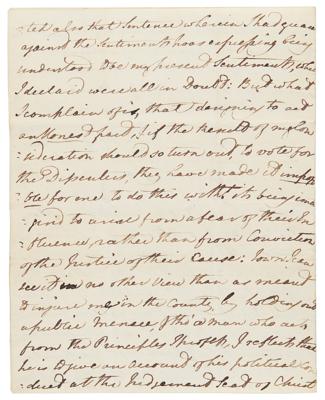 ted also that Sentence wherein I had guar
against the Sentiments I was expressing being
understood to be my present Sentiments, when
I declared we were all in Doubt: But what
I complain of is, that designing to act
an honest part, & if the result of my Con
sideration should so turn out, to vote for
the Dissenters, they have made it impos
sible for me to do this with its being ima
gined to arise from a fear of their In
fluence, rather than from Conviction
of the Justice of their Cause: I own I can
see it in no other view than as meant
to injure me in the County, by holding out
a public Menace & tho' a man who acts
from the Principles I profess, & reflects that
he is to give an account of his political Con
duct at the Judgement seat of Christ